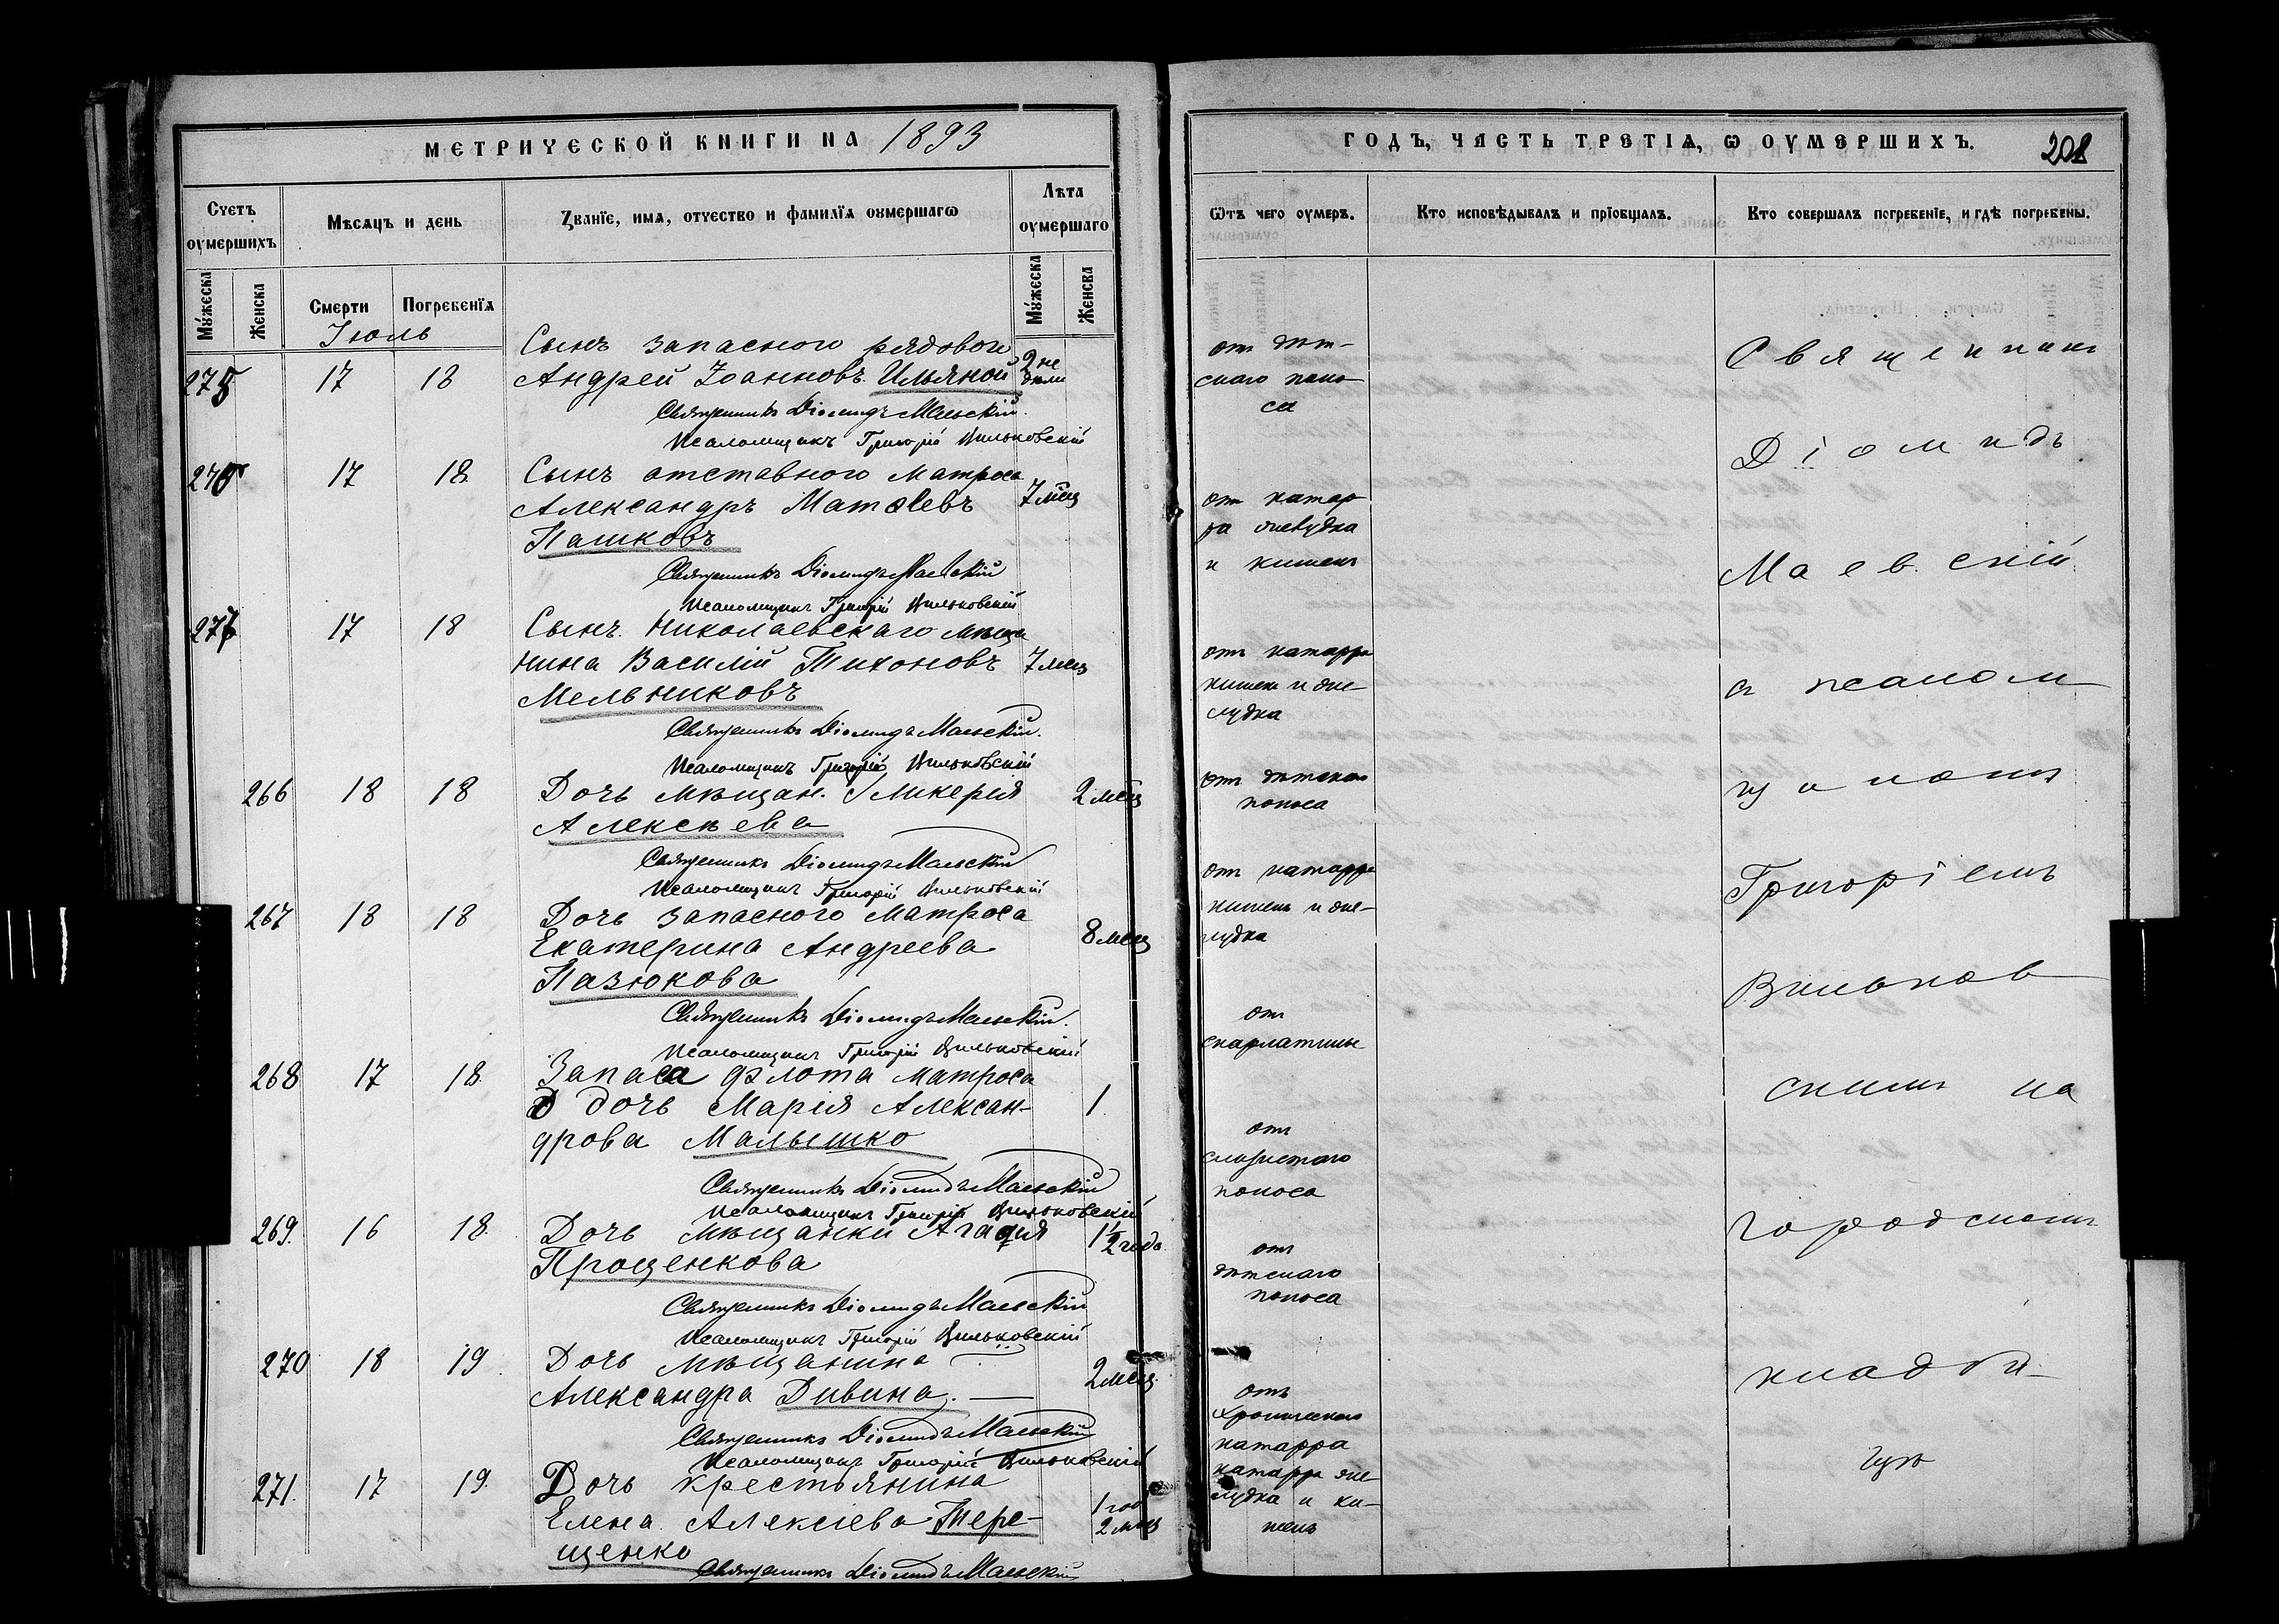 МЕТРИЧЕСКОЙ КНИГИ НА 1893
Счетъ оумершихъ
Мѣсяцъ и день
Званїе, имя, отчество и фамилїя оумершагѡ
Лѣта оумершаго
Мужеска
Женска
Смерти
Погребенїя
Мужеска
Женска
Іюль
275 17 18 Сынъ запасного рядового
Андрей Іоанновъ Ильяной 2 не
дѣли
Священникъ Діомидъ Маевскій.
Псаломщикъ Григорій Вильковскій
276 17 18 Сынъ отставного матроса
Александръ Матѳеевъ 7 мѣс
Пашковъ
Священникъ Діомидъ Маевскій
Псаломщикъ Григорій Вильковскій
277 17 18 Сынъ Николаевскаго мѣща
нина Василій Тихоновъ 7 мѣс
Мельниковъ
Священникъ Діомидъ Маевскій.
Псаломщикъ Григорій Вильковскій
266 18 18 Дочь мѣщан. Гликерія 2 мѣс
Алексѣева
Священникъ Діомидъ Маевскій
Псаломщикъ Григорій Вильковскій
267 18 18 Дочь запасного матроса
Екатерина Андреева 8 мѣс
Пазюкова
Священникъ Діомидъ Маевскій.
Псаломщикъ Григорій Вильковскій
268 17 18. Запаса флота матроса
дочь Марія Алексан- 1
дрова Малышко
Священникъ Діомидъ Маевскій
Псаломщикъ Григорій Вильковскій
269. 16 18. Дочь мѣщанки Агафія 1 1/2 года
Прощенкова
Священникъ Діомидъ Маевскій
Псаломщикъ Григорій Вильковскій
270 18 19. Дочь мѣщанина
Александра Дивина. 2 мѣс.
Священникъ Діомидъ Маевскій
Псаломщикъ Григорій Вильковскій
271. 17 19. Дочь крестьянина
Елена Алексіева Тере- 1 год
2 мѣс
щенко
Священникъ Діомидъ Маевскій
ГОДЪ, ЧАСТЬ ТРЕТІЯ, Ѡ ОУМЕРШИХЪ. 208
Ѿтъ чего оумеръ.
Кто исповѣдывалъ и прїобщалъ.
Кто совершалъ погребенїе, и гдѣ погребены.
отъ дѣт-
скаго поно-
са
отъ катар
ра желудка
и кишекъ
отъ катарра
кишекъ и же
лудка
отъ дѣтскаго
поноса
отъ катарра
кишекъ и же-
лудка
отъ
скарлатины
отъ
слизистаго
поноса
отъ
дѣтскаго
поноса
отъ
хроническаго
катарра
катарра же
лудка и ки-
шекъ
Священникъ
Діомидъ
Маевскій
съ псалом
щикомъ
Григоріемъ
Вильков
скимъ на
городскомъ
кладби-
щѣ